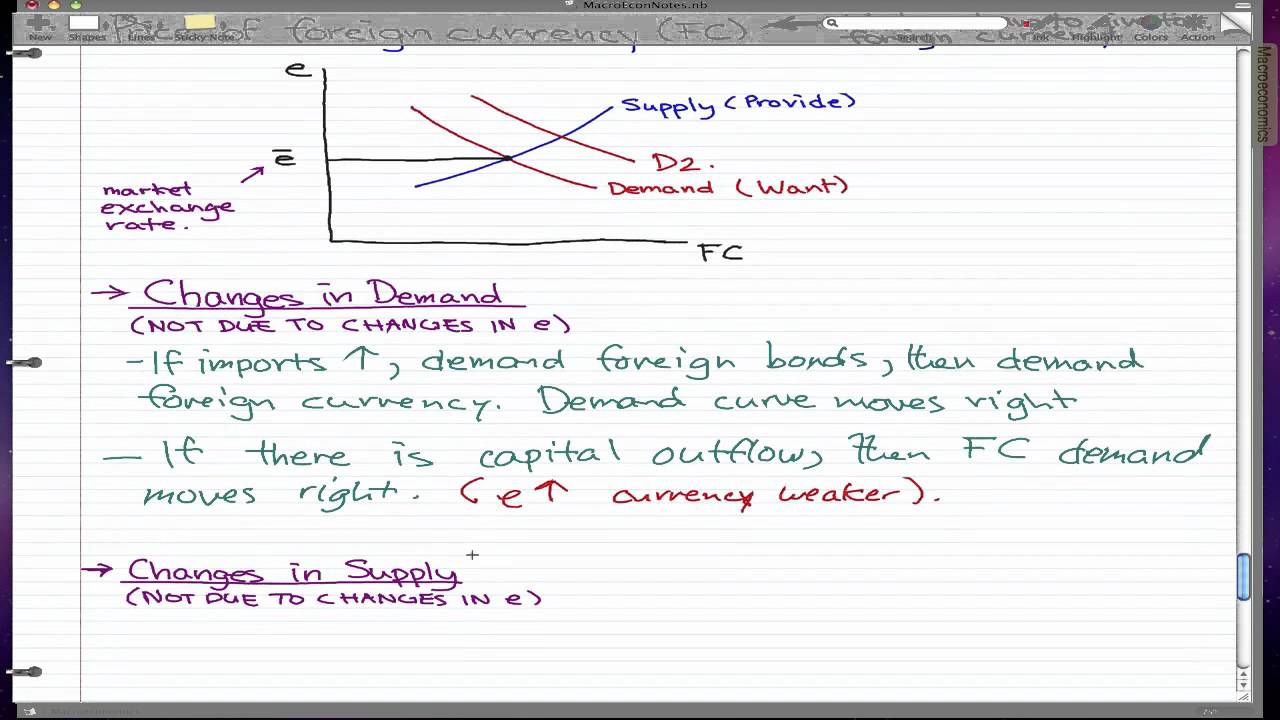 MacroEconNotes.nb
New Shapes Lines Sticky Note Search Ink Highlight Colors Action
of foreign currency (FC)
Macroeconomics
e
Supply (Provide)
ē
D2.
market
exchange
rate.
Demand (Want)
FC
→ Changes in Demand
(NOT DUE TO CHANGES IN e)
- If imports ↑, demand foreign bonds, then demand
foreign currency. Demand curve moves right
— If there is capital outflow, then FC demand
moves right. (e ↑ currency weaker).
→ Changes in Supply
(NOT DUE TO CHANGES IN e)
Macroeconomics